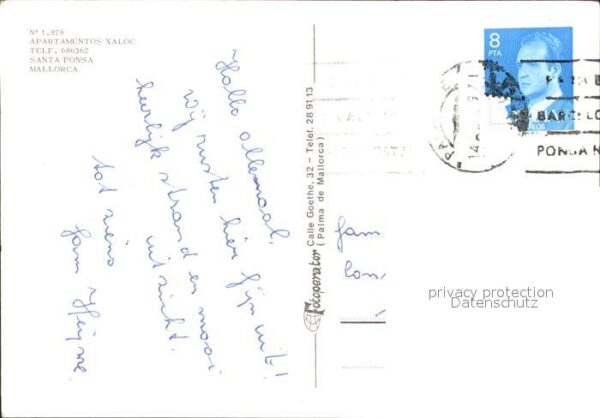 Nº 1.878
APARTAMENTOS XALOC
TELF. 686362
SANTA PONSA
MALLORCA
Hallo allemaal,
Wij rusten hier fijn uit!
heerlijk strand en mooi
uitzicht.
tot ziens
fam.
Fotoperator
Calle Goethe, 32 - Telef. 28 91 13
(Palma de Mallorca)
8
PTA
BARCELO
PONGA N
fam
privacy protection
Datenschutz